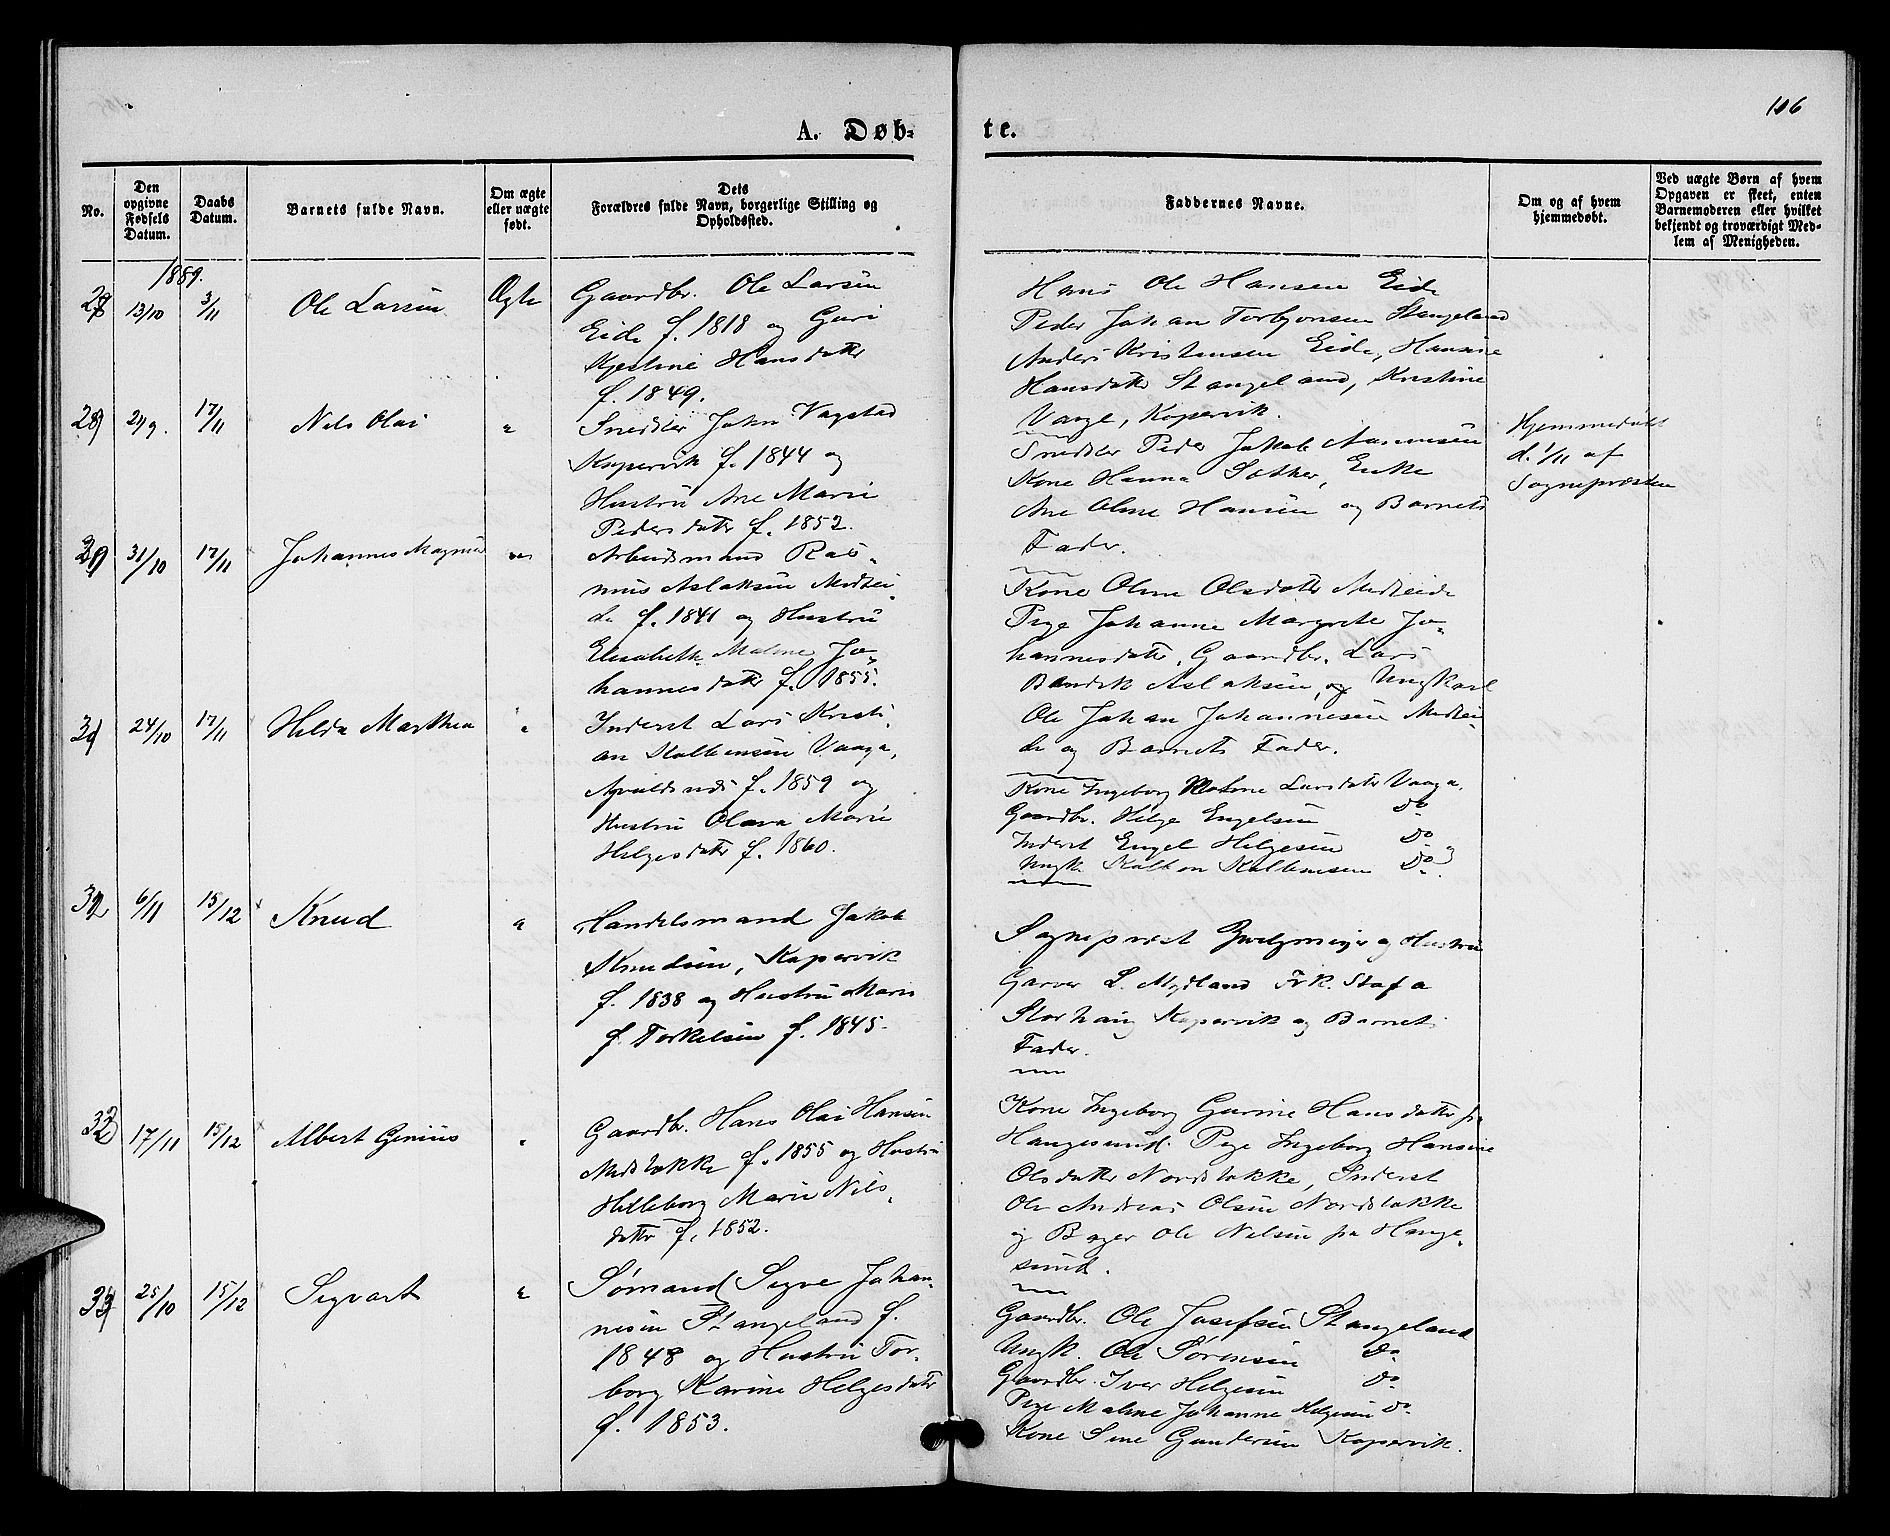 106
A. Døb-
te.
No.
Den
opgivne
Fødsels
Datum.
Daabs
Datum.
Barnets fulde Navn.
Om ægte
eller uægte
født.
Dets
Forældres fulde Navn, borgerlige Stilling og
Opholdssted.
Faddernes Navne.
Om og af hvem
hjemmedøbt.
Ved uægte Børn af hvem
Opgaven er skeet, enten
Barnemoderen eller hvilket
bekjendt og troværdigt Med-
lem af Menigheden.
1889.
28 13/10 3/11 Ole Larsen Ægte
Gaardbr. Ole Larsen
Eide f. 1818 og Guri
Kjestine Hansdatter
f. 1849.
Hans Ole Hansen Eide
Peder Johan Torbjonsen Stangeland
Anders Kristensen Eide, Hansine
Hansdatter Stangeland, Kristine
Vaage, Kopervik.
29 29/9. 17/11 Nils Olai "
Snedker John Vagstad
Kopervik f. 1844 og
Hustru Ane Marie
Pedersdatter f. 1852.
Snedker Peder Jakob Rasmusen
Kone Hanna Sæther, Enke
Ane Oline Hansen og Barnets
Fader.
Hjemmedøbt
d. 1/11 af
Sognepræsten
30 31/10 17/11 Johannes Magnus "
Arbeidsmand Ras-
mus Aslaksen Medhei-
de f. 1841 og Hustru
Elisabeth Maline Jo-
hannesdatter f. 1855.
Kone Oline Olsdatter Medheide
Pige Johanne Margrete Jo-
hannesdatter, Gaardbr. Lars
Bendik Aslaksen, og Ungkarl
Ole Johan Johannesen Medhei-
de og Barnets Fader.
31 24/10 17/11 Helda Marthea "
Inderst Lars Kristi-
an Kolbensen Vaaga,
Avaldsnes f. 1859 og
Hustru Olava Marie
Helgesdatter f. 1860.
Kone Ingeborg Maline Larsdatter Vaaga,
Gaardbr. Helge Engelsen Do
Inderst Engel Helgesen Do og
Ungk. Kolben Kolbensen Do.
32 6/11 15/12 Knud "
Handelsmand Jakob
Knudsen, Kopervik
f. 1838 og Hustru Maren
f. Torkelsen f. 1845.
Sogneprest og Hustru
Garver L. Mydland Frk. Stafa
Storhaug Kopervik og Barnets
Fader.
33 17/11 15/12 Albert Genius "
Gaardbr. Hans Olai Hansen
Medstokke f. 1855 og Hustru
Helleborg Marie Nils-
datter f. 1852.
Kone Ingeborg Gurine Hansdatter fra
Haugesund. Pige Ingeborg Hansine
Olsdatter Nordstokke, Inderst
Ole Andreas Olsen Nordstokke
og Bager Ole Nilsen fra Hauge-
sund.
34 25/10 15/12 Sigvart "
Sømand Sigve Johan-
nesen Stangeland f.
1848 og Hustru Tor-
borg Karine Helgesdatter
f. 1853.
Gaardbr. Ole Josefsen Stangeland
Ungk. Ole Sørensen Do.
Gaardbr. Iver Helgesen Do.
Pige Maline Johanne Helgesen Do.
Kone Sine Gundersen Kopervik.